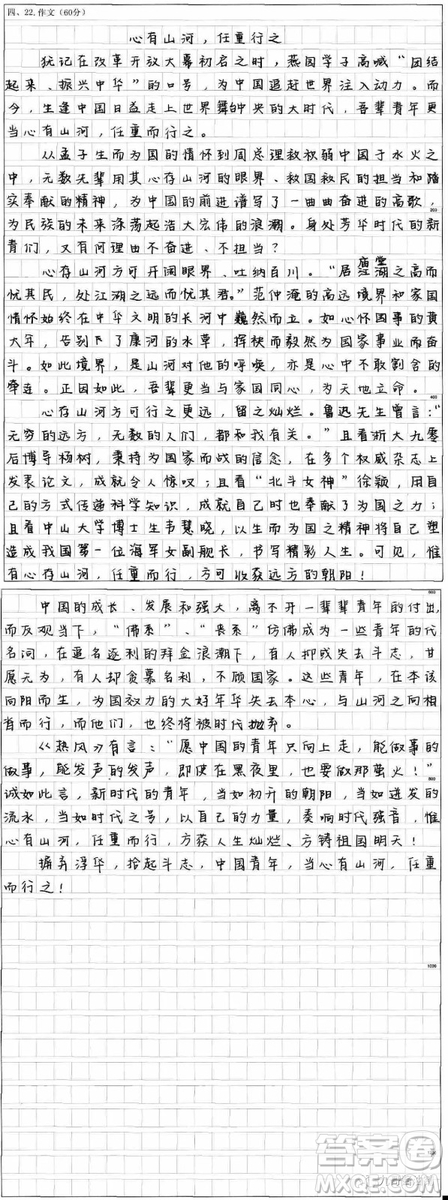 四、22.作文(60分)
心有山河，任重行之
犹记在改革开放大幕初启之时，燕园学子高喊“团结
起来、振兴中华”的口号，为中国追赶世界注入动力。而
今，生逢中国日益走上世界舞台中央的大时代，吾辈青年更
当心有山河，任重而行之。
从孟子生而为国的情怀到周总理救积弱中国于水火之
中，无数先辈用其心存山河的眼界、救国救民的担当和踏
实奉献的精神，为中国的前进谱写了一曲曲奋进的高歌，
200
为民族的未来涤荡起浩大宏伟的浪潮。身处芳华时代的新
青们，又有何理由不奋进、不担当？
心存山河方可开阔眼界、吐纳百川。“居庙堂之高而
忧其民，处江湖之远而忧其君。”范仲淹的高远境界和家国
情怀始终在中华文明的长河中巍然而立。如心怀国事的黄
大年，告别下了康河的水草，挥袂而毅然为国家事业而奋
斗。如此境界，是山河对他的呼唤，亦是心中不敢割舍的
牵连。正因如此，吾辈更当与家国同心，为天地立命。
400
心存山河方可行之更远，留之灿烂。鲁迅先生曾言：“
无穷的远方，无数的人们，都和我有关。”且看浙大九零
后博导杨树，秉持为国家而战的信念，在多个权威杂志上
发表论文，成就令人惊叹；且看“北斗女神”徐颖，用自
己的方式传递科学知识，成就自己时也奉献了为国之力；
且看中山大学博士生韦慧晓，以生而为国之精神将自己塑
造成我国第一位海军女副舰长，书写精彩人生。可见，惟
有心存山河，任重而行，方可收获远方的朝阳！
600
中国的成长、发展和强大，离不开一辈辈青年的付出，
而反观当下，“佛系”、“丧系”仿佛成为一些青年的代
名词，在追名逐利的拜金浪潮下，有人抑或失去斗志，甘
愿无为，有人却贪慕名利，不顾国家。这些青年，在本该
向阳而生，为国效力的大好年华失去本心，与山河之向相
背而行，而他们，也终将被时代抛弃。
《热风》有言：“愿中国的青年只向上走，能做事的
做事，能发声的发声，即使在黑夜里，也要做那萤火！”
800
诚如此言，新时代的青年，当如初升的朝阳，当如迸发的
流水，当如时代之号，以自己的力量，奏响时代强音，惟
心有山河，任重而行，方获人生灿烂、方铸祖国明天！
摒弃浮华，拾起斗志，中国青年，当心有山河，任重
而行之！
1000
答案圈